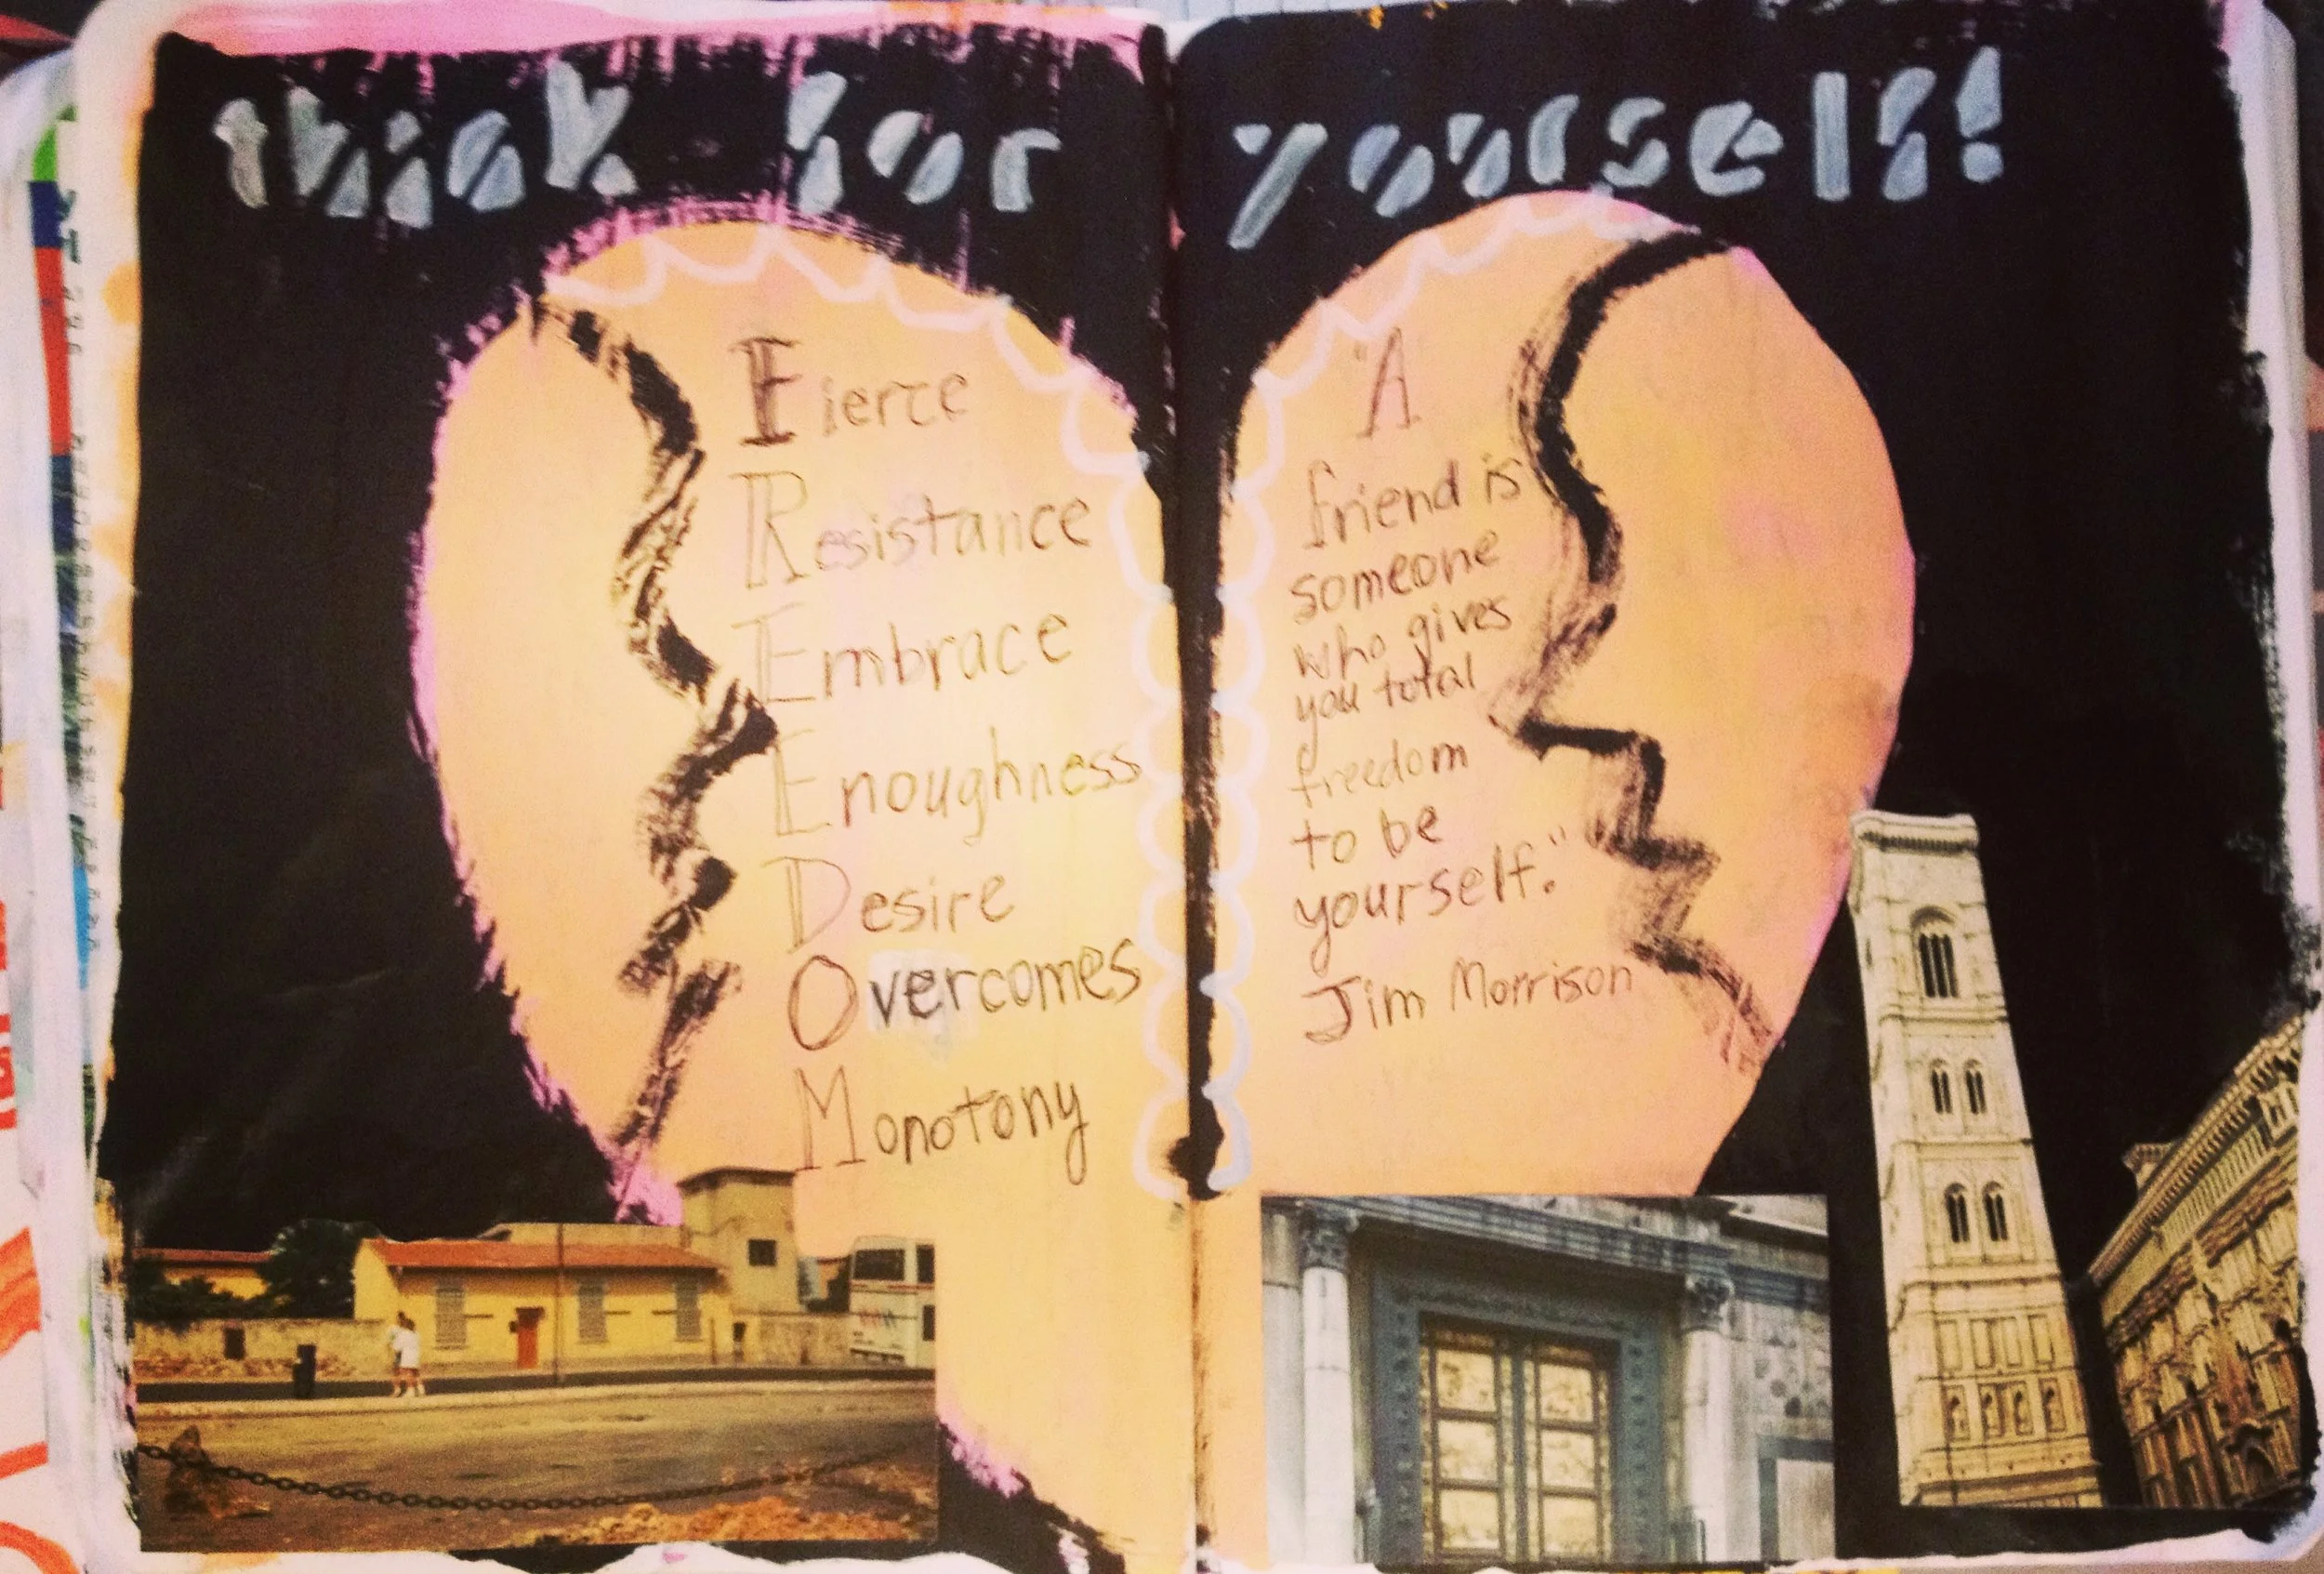 think for yourself!
Fierce
Resistance
Embrace
Enoughness
Desire
Overcomes
Monotony
"A
friend is
someone
who gives
you total
freedom
to be
yourself."
Jim Morrison